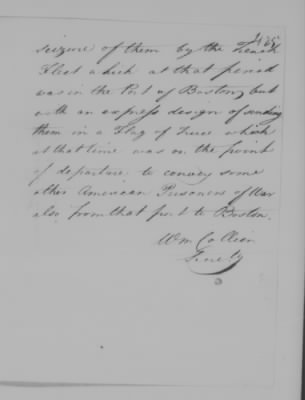 seizure of them by the French
Fleet which at that period
was in the Port of Boston, but
with an express design of sending
them in a Flag of Truce which
at that time was on the point
of departure to convey some
other American Prisoners of War
also from that port to Boston.
Wm